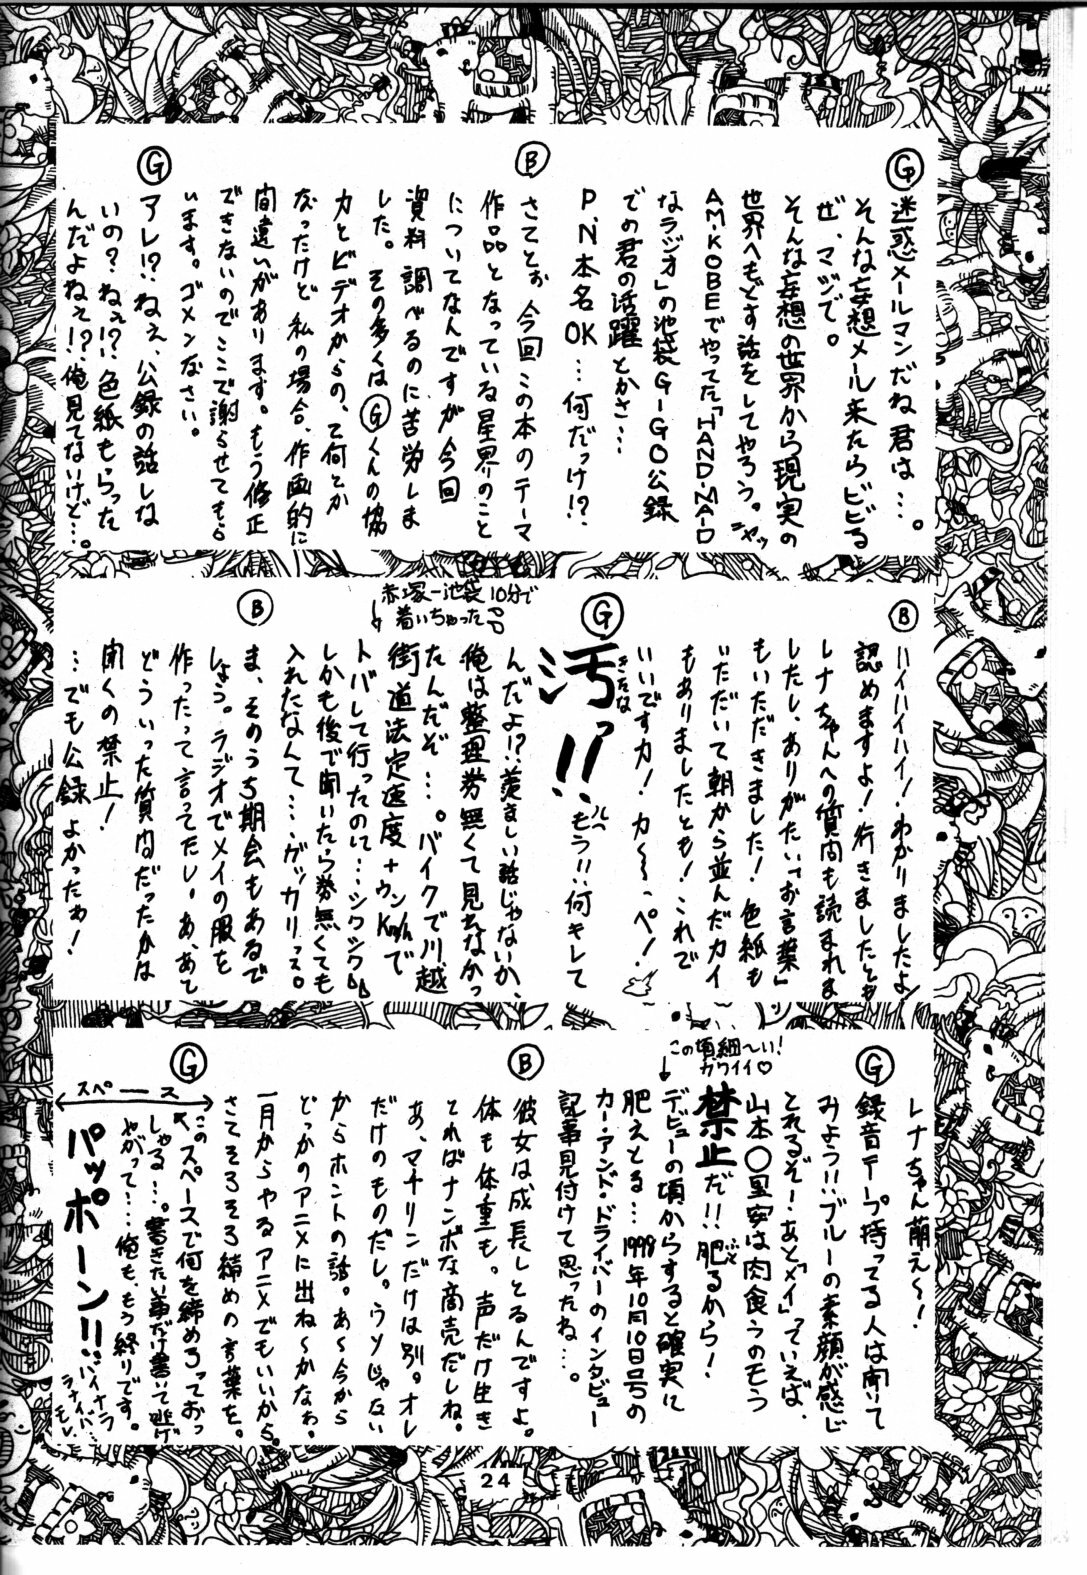 Ⓖ
迷惑メールマンだね君は…。
そんな妄想メール来たらビビる
ぜ、マジで。
そんな妄想の世界から現実の
世界へもどす話をしてやろう。ニヤッ
AM・KOBEでやってた「HAND・MAID
なラジオ」の池袋GIGO公録
での君の活躍とかさ…
P.N本名OK…何だっけ!?
Ⓑ
さてとぉ、今回この本のテーマ
作品となっている星界のこと
についてなんですが今回
資料調べるのに苦労しま
した。その多くはⒼくんの協
力とビデオからの、で何とか
なったけど私の場合、作画的に
間違いがあります。もう修正
できないのでここで謝らせてもら
います。ゴメンなさい。
Ⓖ
アレ!?ねぇ、公録の話しな
いの?ねぇ!?色紙もらった
んだよねぇ!?俺見てないけど…。
Ⓑ
ハイハイハイ!わかりましたよ!
認めますよ!行きましたとも
レナちゃんへの質問も読まれま
したし、ありがたい「お言葉」
もいただきました!色紙も
いただいて朝から並んだカイ
もありましたとも!これで
いいですカ!カ〜ーっペ!
Ⓖ
汚っ!!
きたな
もう!!何キレて
んだよ!?羨ましい話じゃないか…
俺は整理券無くて見れなかっ
たんだぞ…。バイクで川越
街道法定速度+ウンkm/hで
トバして行ったのに…シクシク
赤塚-池袋10分で
着いちゃった
しかも後で聞いたら券無くても
入れたなんて…。ゲッカリっス。
Ⓑ
ま、そのうち期会もあるで
しょう。ラジオでメイの服を
作ったって言ってたし。あ、あと
どういった質問だったかは
聞くの禁止!
…でも公録よかったわ!
レナちゃん萌え〜!
Ⓖ
録音テープ持ってる人は聞いて
みよう!!ブルーの素顔が感じ
とれるぞ!あと「メイ」っていえば、
山本〇里安は肉食うのもう
禁止だ!!肥るから!
この頃細〜い!
カワイイ♡
デビューの頃からすると確実に
肥えとる…1998年10月10日号の
カー・アンド・ドライバーのインタビュー
記事見付けて思ったね…。
Ⓑ
彼女は成長しとるんですよ。
体も体重も。声だけ生き
とればナンボな商売だしね。
あ、マチリンだけは別。オレ
だけのものだし。ウソじゃない
からホントの話。あ〜今から
どっかのアニメに出ね〜かなぁ。
一月からやるアニメでもいいから。
さてそろそろ締めの言葉を。
Ⓖ
スペース
このスペースで何を締めろっておっ
しゃる…。書きたい事だけ書いて逃げ
やがって…俺も、もう終りです。
パッポーン!!
バイナラ
ラナイバ…
モレ
24